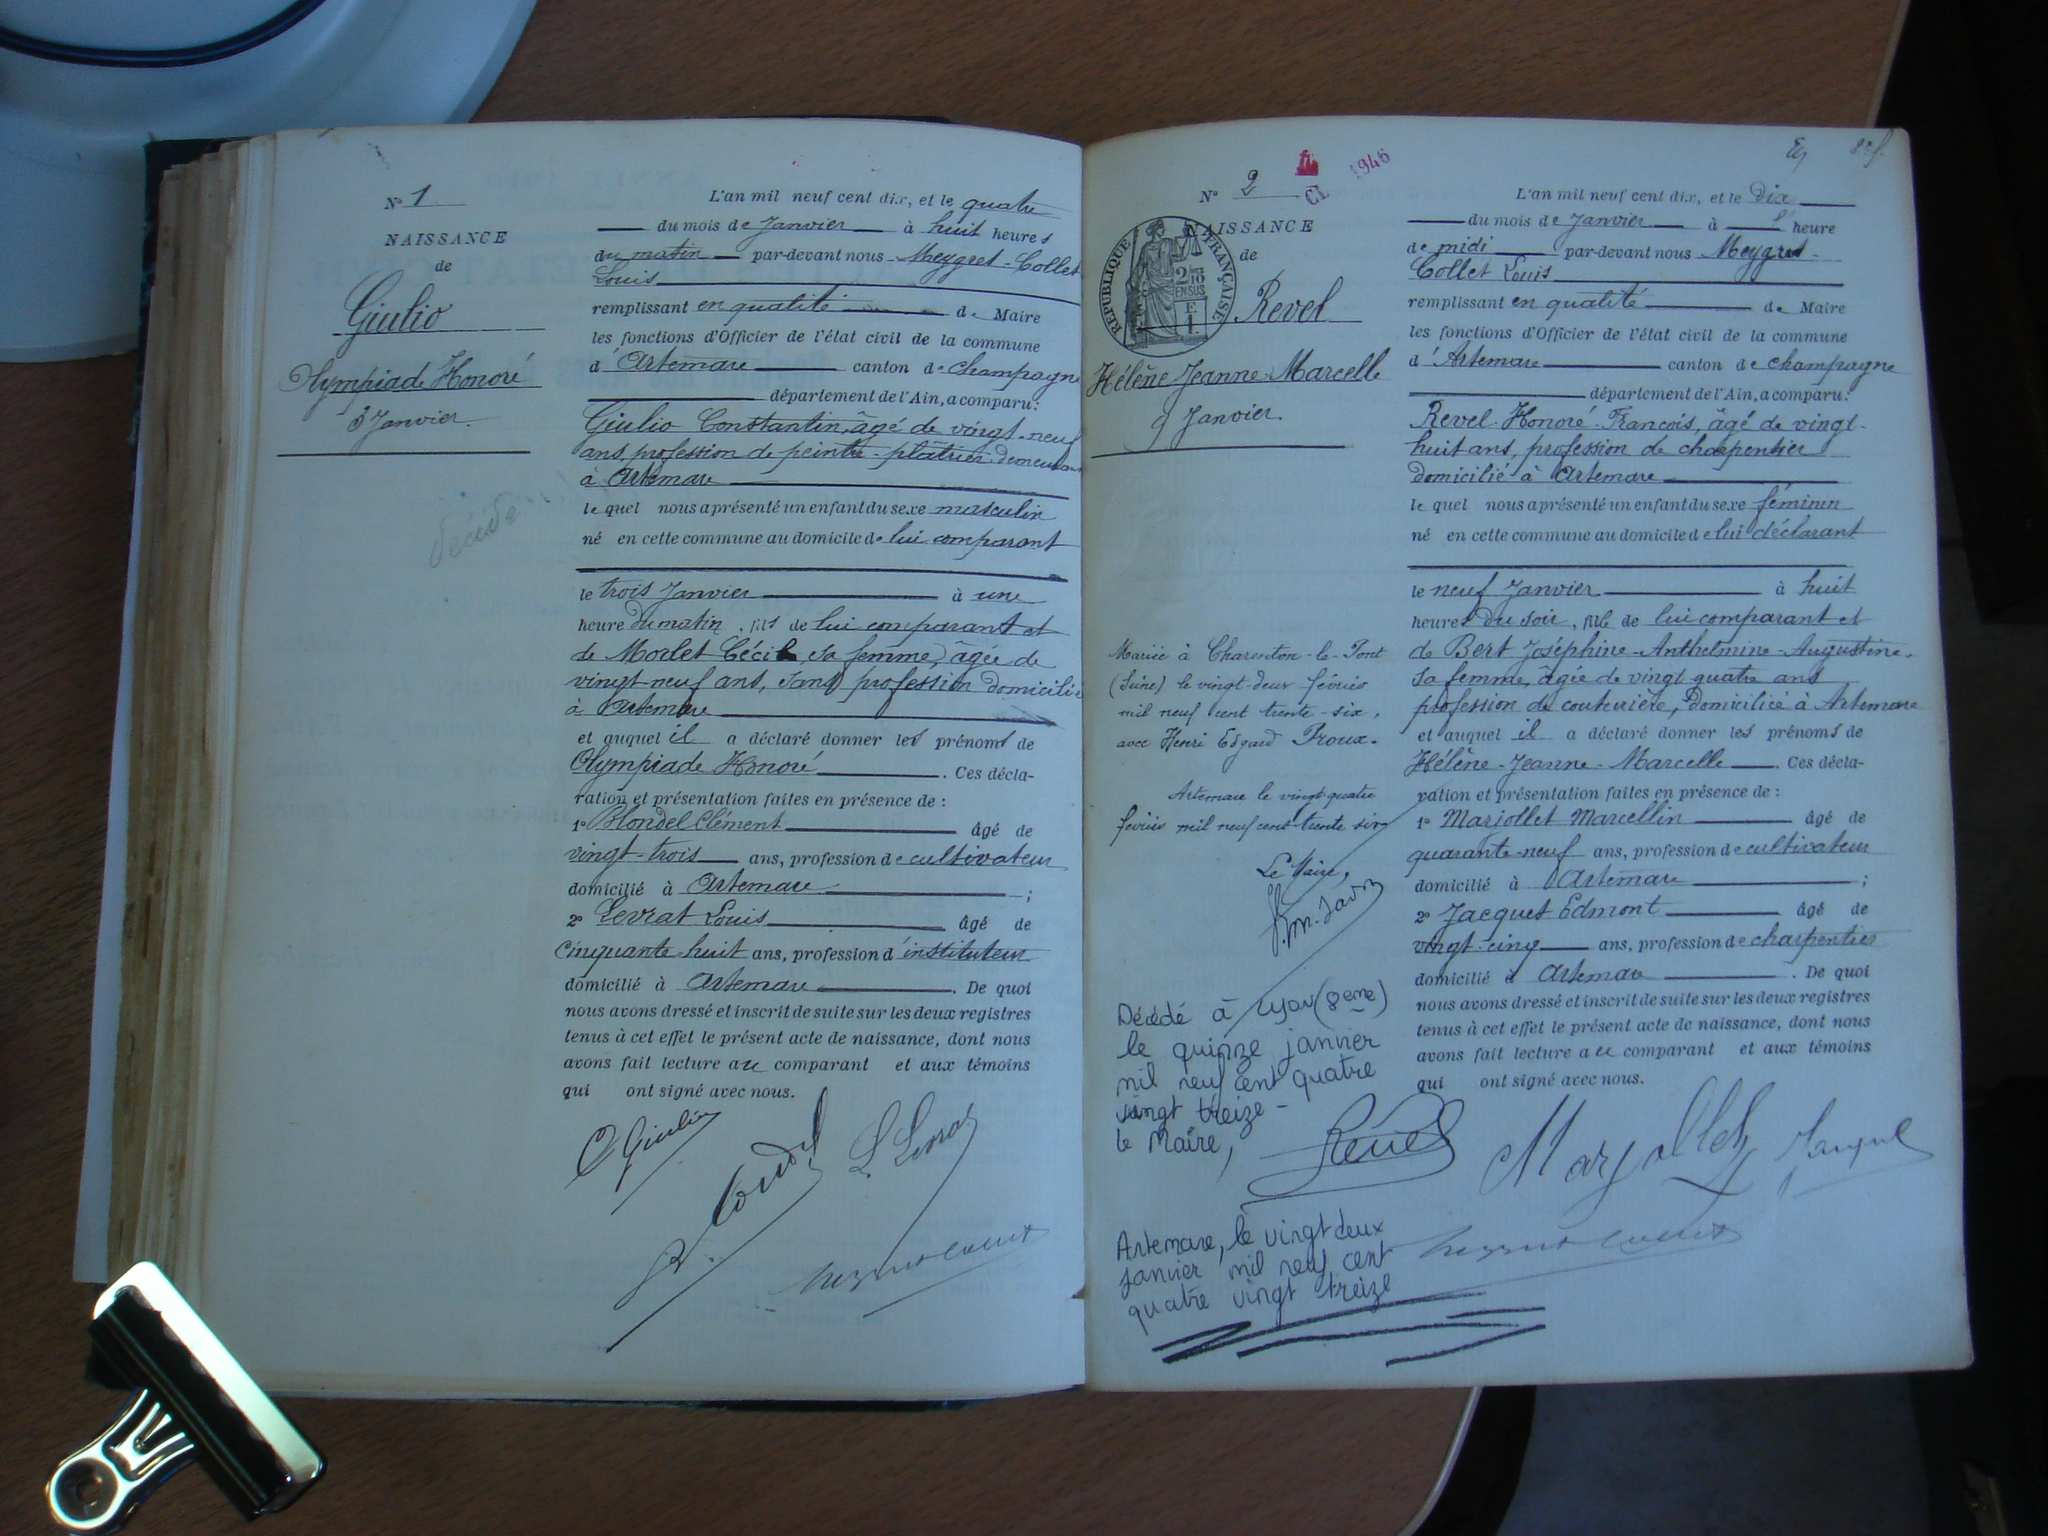 N° 1
NAISSANCE
de
Giulio
Olympiade Honoré
3 Janvier.
décédé
L'an mil neuf cent dix, et le quatre
du mois de Janvier à huit heures
du matin par-devant nous Meygret-Collet
Louis
remplissant en qualité de Maire
les fonctions d'Officier de l'état civil de la commune
d'Artemare canton de Champagne
département de l'Ain, a comparu:
Giulio Constantin, âgé de vingt-neuf
ans, profession de peintre-plâtrier demeurant
à Artemare
lequel nous a présenté un enfant du sexe masculin
né en cette commune au domicile de lui comparant
le trois Janvier à une
heure du matin, fils de lui comparant et
de Morlet Cécile, sa femme, âgée de
vingt-neuf ans, sans profession domiciliée
à Artemare
et auquel il a déclaré donner les prénoms de
Olympiade Honoré. Ces décla-
ration et présentation faites en présence de :
1° Blondel Clément âgé de
vingt-trois ans, profession de cultivateur
domicilié à Artemare ;
2° Levrat Louis âgé de
cinquante-huit ans, profession d'instituteur
domicilié à Artemare. De quoi
nous avons dressé et inscrit de suite sur les deux registres
tenus à cet effet le présent acte de naissance, dont nous
avons fait lecture au comparant et aux témoins
qui ont signé avec nous.
C Giulio
L. Levrat
N° 2
CL 1946
NAISSANCE
de
RÉPUBLIQUE FRANÇAISE
2/10
EN SUS
E
1
Revel
Hélène Jeanne-Marcelle
9 Janvier.
Mariée à Charenton-le-Pont
(Seine) le vingt-deux février
mil neuf cent trente-six,
avec Henri Edgard Proux.
Artemare le vingt quatre
février mil neuf cent trente six
Le Maire,
Décédé à Lyon (8eme)
le quinze janvier
mil neuf cent quatre
vingt treize -
le Maire,
Artemare, le vingt deux
janvier mil neuf cent
quatre vingt treize
L'an mil neuf cent dix, et le dix
du mois de Janvier à l' heure
de midi par-devant nous Meygret-
Collet Louis
remplissant en qualité de Maire
les fonctions d'Officier de l'état civil de la commune
d'Artemare canton de Champagne
département de l'Ain, a comparu:
Revel-Honoré-François, âgé de vingt-
huit ans, profession de charpentier
domicilié à Artemare
lequel nous a présenté un enfant du sexe féminin
né en cette commune au domicile de lui déclarant
le neuf Janvier à huit
heures du soir, fille de lui comparant et
de Bert Joséphine-Anthelmine-Augustine,
sa femme, âgée de vingt quatre ans
profession de couturière, domiciliée à Artemare
et auquel il a déclaré donner les prénoms de
Hélène-Jeanne-Marcelle. Ces décla-
ration et présentation faites en présence de :
1° Marjollet Marcellin âgé de
quarante-neuf ans, profession de cultivateur
domicilié à Artemare ;
2° Jacquet Edmont âgé de
vingt-cinq ans, profession de charpentier
domicilié à Artemare. De quoi
nous avons dressé et inscrit de suite sur les deux registres
tenus à cet effet le présent acte de naissance, dont nous
avons fait lecture au comparant et aux témoins
qui ont signé avec nous.
Revel Marjollet Jacquet